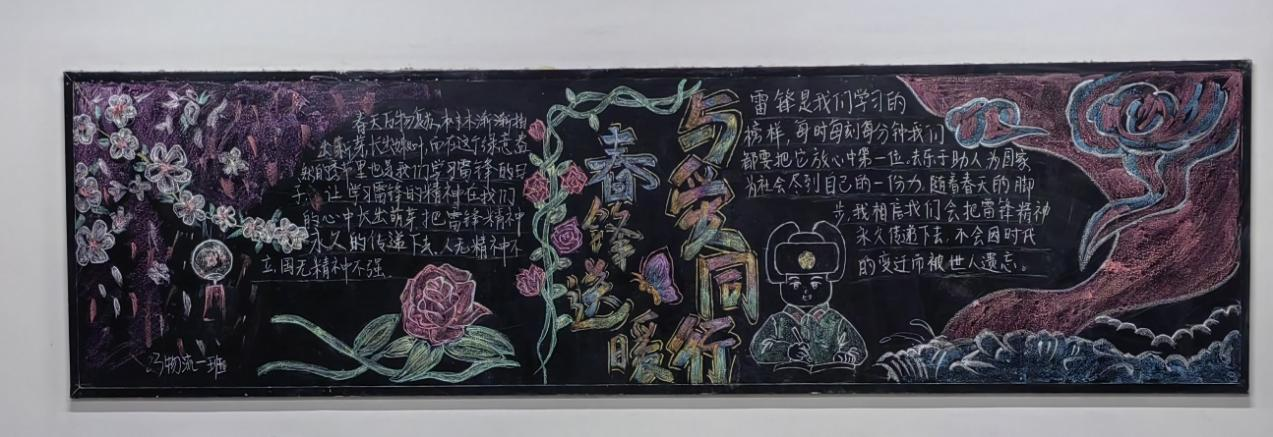 春天万物复苏,树木渐渐抽
出新芽,长出嫩叶,而在这个绿意盎
然的季节里也是我们学习雷锋的日
子,让学习雷锋的精神在我们
的心中长出萌芽,把雷锋精神
永久的传递下去,人无精神不
立,国无精神不强.
23物流一班
春锋送暖
与爱同行
雷锋是我们学习的
榜样,每时每刻每分钟我们
都要把它放心中第一位.去乐于助人为国家
为社会尽到自己的一份力.随着春天的脚
步,我相信我们会把雷锋精神
永久传递下去,不会因时代
的变迁而被世人遗忘。